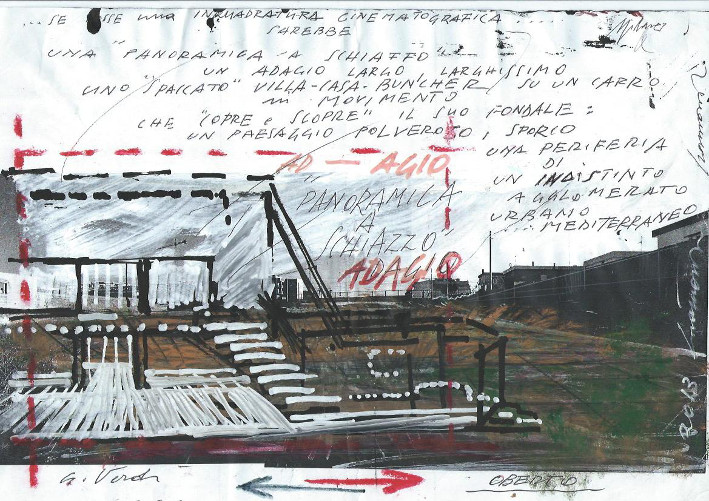 ...SE FOSSE UNA INQUADRATURA CINEMATOGRAFICA
SAREBBE
UNA "PANORAMICA A SCHIAFFO"
UN ADAGIO LARGO LARGHISSIMO
UNO "SPACCATO" VILLA-CASA-BUNCHER SU UN CARRO
IN MOVIMENTO
CHE "COPRE e SCOPRE" IL SUO FONDALE:
UN PAESAGGIO POLVEROSO, SPORCO
UNA PERIFERIA
DI
UN INDISTINTO
AGGLOMERATO
URBANO
... MEDITERRANEO
AD — AGIO
"PANORAMICA
A
SCHIAZZO"
ADAGIO
2013
G. Verdi
OBERTO